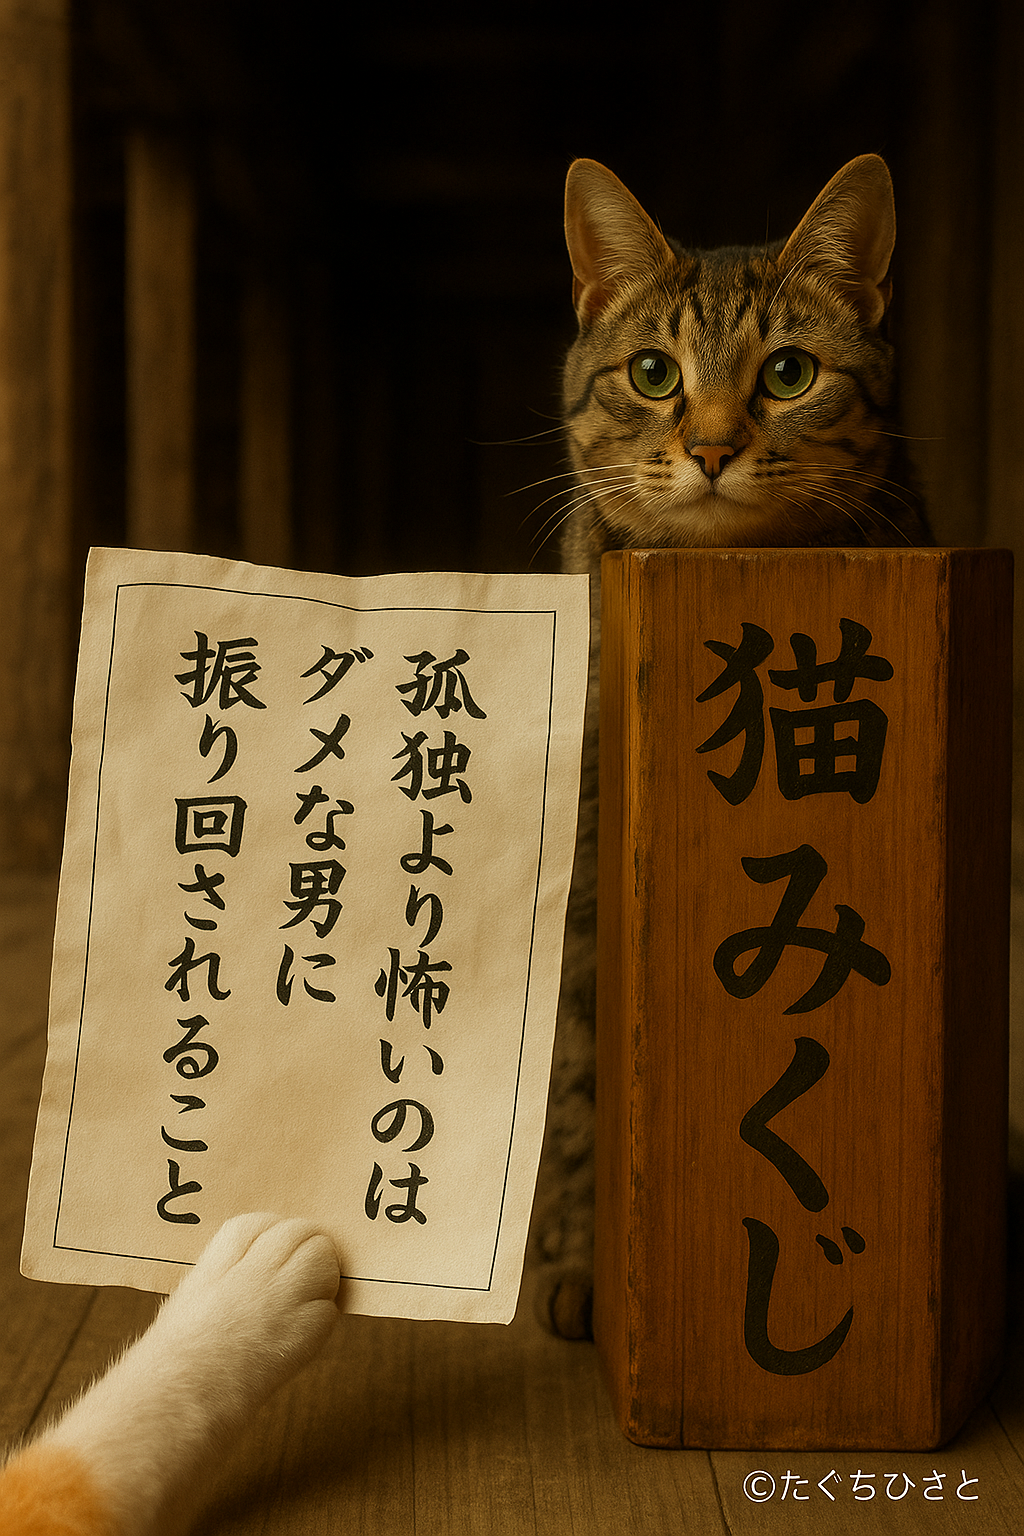 孤独より怖いのは
ダメな男に
振り回されること
猫みくじ
©たぐちひさと